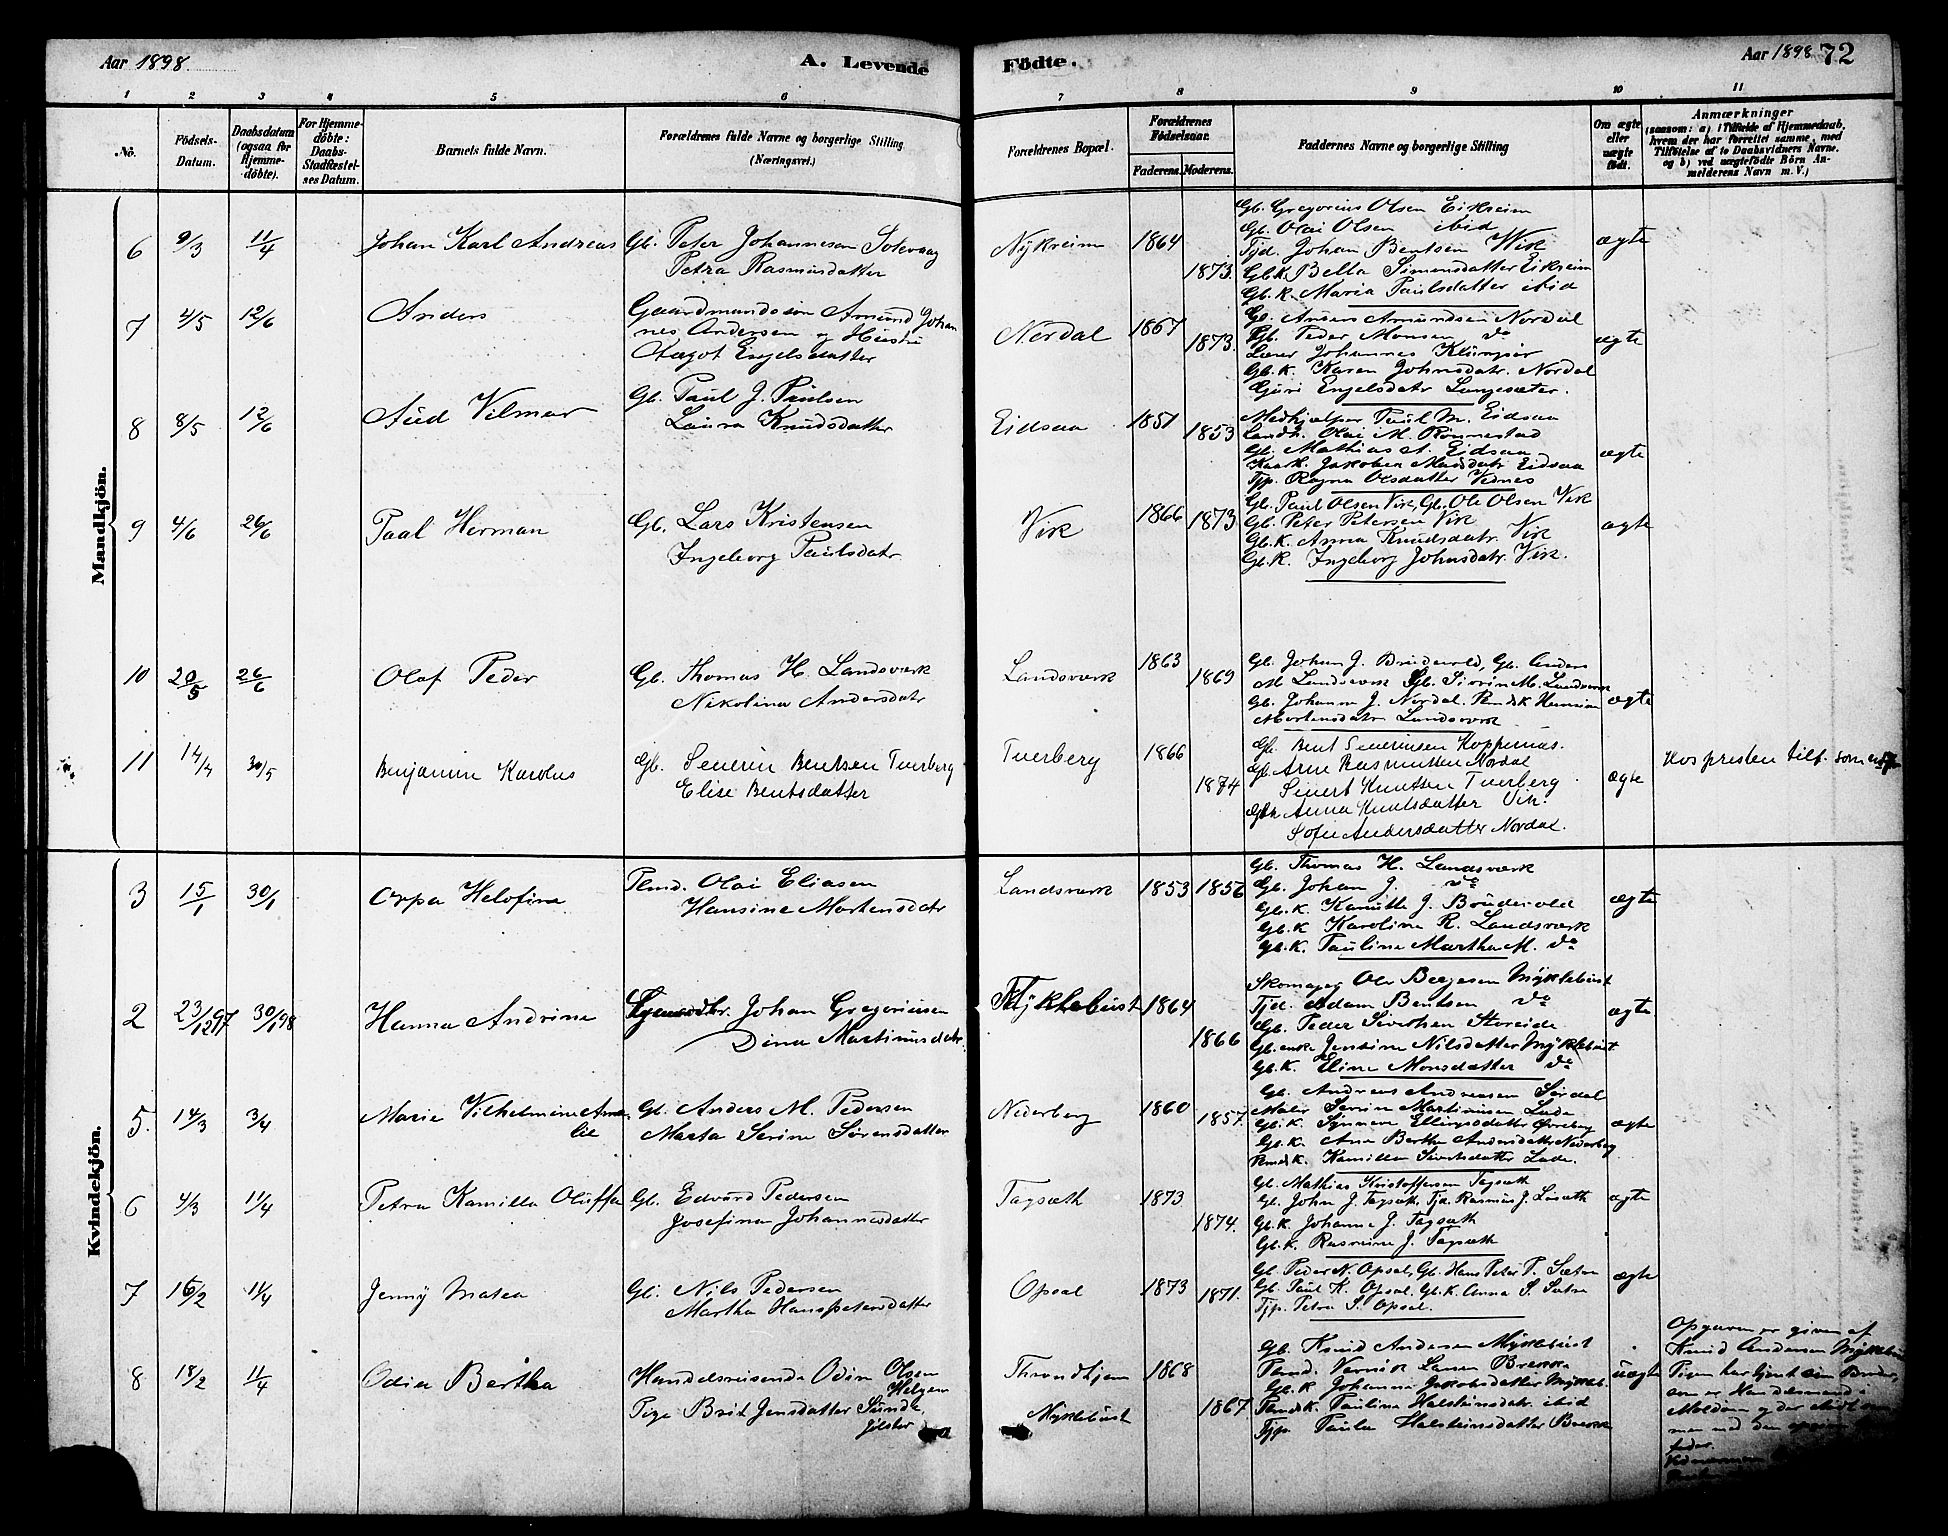 Aar 1898.
A. Levende
Födte.
Aar 1898
72
1 2 3 4 5 6 7 8 9 10 11
No.
Födsels-
Datum.
Daabsdatum
(ogsaa for
Hjemme-
döbte).
For Hjemme-
döbte:
Daabs-
Stadfæstel-
ses Datum.
Barnets fulde Navn.
Forældrenes fulde Navne og borgerlige Stilling
(Næringsvei.)
Forældrenes Bopæl.
Forældrenes
Födselsaar.
Faderens. Moderens.
Faddernes Navne og borgerlige Stilling
Om ægte
eller
uægte
födt.
Anmærkninger
(saasom: a) i Tilfælde af Hjemmedaab,
hvem der har forrettet samme, med
Tilföielse af to Daabsvidners Navne,
og b) ved uægtefödte Börn An-
melderens Navn m. V.)
Mandkjön.
6 9/3 11/4 Johan Karl Andreas
Gb. Peter Johannesen Solevaag
Petra Rasmusdatter
Nykreim 1864 1873.
Gb. Gregorius Olsen Eikreim
Gb. Olai Olsen ibid
Tjd. Johan Bentsen Vik
Gb.K. Bella Simonsdatter Eikreim
Gb.K. Maria Paulsdatter ibid
ægte
7 4/5 12/6 Anders
Gaardmandssøn Amund Johan
nes Andersen og Hustru
Aagot Engelsdatter
Nordal 1867 1873.
Gb. Anders Amundsen Nordal
Gb. Peder Monsen do
Lærer Johannes
Gb.K. Karen Johnsdatr. Nordal
Guri Engelsdatr Langesæter.
ægte
8 8/5 12/6 Aud Vilmar
Gb. Paul J. Paulsen
Laura Knudsdatter
Eidsaa 1851 1853
Medhjælper Paul M. Eidsaa
Landh. Olai M. Rønnestad
Gb. Mathias A. Eidsaa
Kaark. Jakobea Madsdatr Eidsaa
Tjp. Ragna Olsdatter Vednes
ægte
9 4/6 26/6 Paal Herman
Gb. Lars Kristensen
Ingeborg Paulsdatr
Vik 1866 1873
Gb. Paul Olsen Vik, Gb. Ole Olsen Vik
Gb. Peter Petersen Vik
Gb.K. Anna Knudsdatr. Vik
Gb.K. Ingeborg Johnsdatr. Vik.
ægte
10 20/5 26/6 Olaf Peder
Gb. Thomas H. Landsværk
Nikolina Andersdatr
Landsværk 1863 1869
Gb. Johan J. Brudevold, Gb. Anders
M Landsværk Gb. Sivrin M. Landsværk
Gb. Johanne J. Nordal.
Mortensdatr Landsværk
ægte
11 14/4 30/5 Benjamin Karolus
Gb. Severin Bentsen Tuerberg
Elise Bentsdatter
Tuerberg 1866 1874
Gb. Bent Severinsen Koppernæs.
Gb. Arne Rasmussen Nordal
Sivert Knutsen Tuerberg
Anna Knutsdatter Vik.
Sofie Andersdatter Nordal.
ægte
Hos presten tilf. som
Kvindekjön.
3 15/1 30/1 Orpa Helofine
Plmd. Olai Eliasen
Hansine Mortensdatr
Landsværk 1853 1856
Gb. Thomas H. Landsværk
Gb. Johan J. do
Gb.K. Kanutte J. Brudevold
Gb.K. Karoline R. Landsværk
Gb.K. Pauline Martha M. do
ægte
2 23/12 97 30/1 98 Hanna Andrine
Johan Gregoriusen
Dina Martinusdatr
Myklebust 1864 1866
Skomager Ole Myklebust
Tjd. Adam Bentsen do
Gb. Peder Sivertsen Storeide
Gb. enke Jensine Nilsdatter Myklebust
Gb.K. Eline Monsdatter do
ægte
5. 14/3 3/4 Marie Vilhelmine Ama
lie
Gb. Anders M. Pedersen
Marta Serine Sørensdatter
Nederberg 1860 1857.
Gb. Andreas Andreasen Sørdal
Maler Severin Martinusen Lade
Gb.K. Synneve Ellingsdatter Øvreberg
Gb.K. Ane Berthe Andersdatter Nederberg
Kamilla Sivertsdatter Lade.
ægte
6 4/3 11/4 Petra Kamilla Oluffa
Gb. Edvard Pedersen
Josefina Johannesdatter
Tagsæth 1873 1874.
Gb. Mathias Kristoffersen Tagsæth
Gb. John J. Tagsæth, Tjd. Rasmus J. Løsæth
Gb.K. Johanne J. Tagsæth
Gb.K. Rasmine J. Tagsæth
ægte
7 16/2 11/4 Jenny Matea
Gb. Nils Pedersen
Martha Hanspetersdatter
Opsal 1873 1871.
Gb. Peder N. Opsal, Gb. Hans Peter P. Sætre
Gb. Paul K. Opsal, Gb.K. Anna S. Sætre
Tjp. Petra S. Opsal.
ægte
8 18/2 11/4 Odin Bertha
Handelsreisende Odin Olsen
Helgesen
Pige Brit Jensdatter Sunde
Jølster
Throndhjem 1868
Myklebust 1867
Gb. Knud Andersen Myklebust
Plmd. Lassen Brekke
Gb.K. Johanna Jakobsdatter Mykleb.
Plmdsk. Paulina Halsteinsdatr. ibid
Tjp. Paula Halsteinsdatter Brekke
uægte
Opgaven er given af
Knud Andersen Myklebust
Pigen har tjent
som er Handelsmand i
Molde og der
men med den
fader.